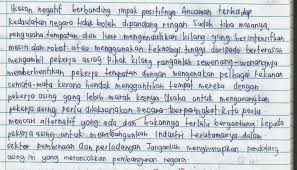 kesan negatif berbanding impak positifnya. Ancaman terhadap
kedaulatan negara tidak boleh dipandang ringan. Sudah tiba masanya,
pengusaha tempatan dan luar mengendalikan kilang yang berintensifkan
mesin dan robot atau menggunakan teknologi tinggi daripada berterusan
mengambil pekerja asing. Pihak kilang janganlah sewenang-wenangnya
memberhentikan pekerja tempatan dengan mengenakan pelbagai tekanan
semata-mata kerana hendak menggantikan tempat mereka dengan
pekerja asing yang lebih murah kosnya. Usaha untuk mengurangkan
pekerja asing perlu dilaksanakan secara berperingkat. Kita perlu
mencari alternatif yang ada dan bukannya terlalu bergantung kepada
pekerja asing untuk membangunkan industri terutamanya dalam
sektor pembinaan dan perladangan. Janganlah mengharapkan pendatang
asing ini yang merancakkan pembangunan negara.